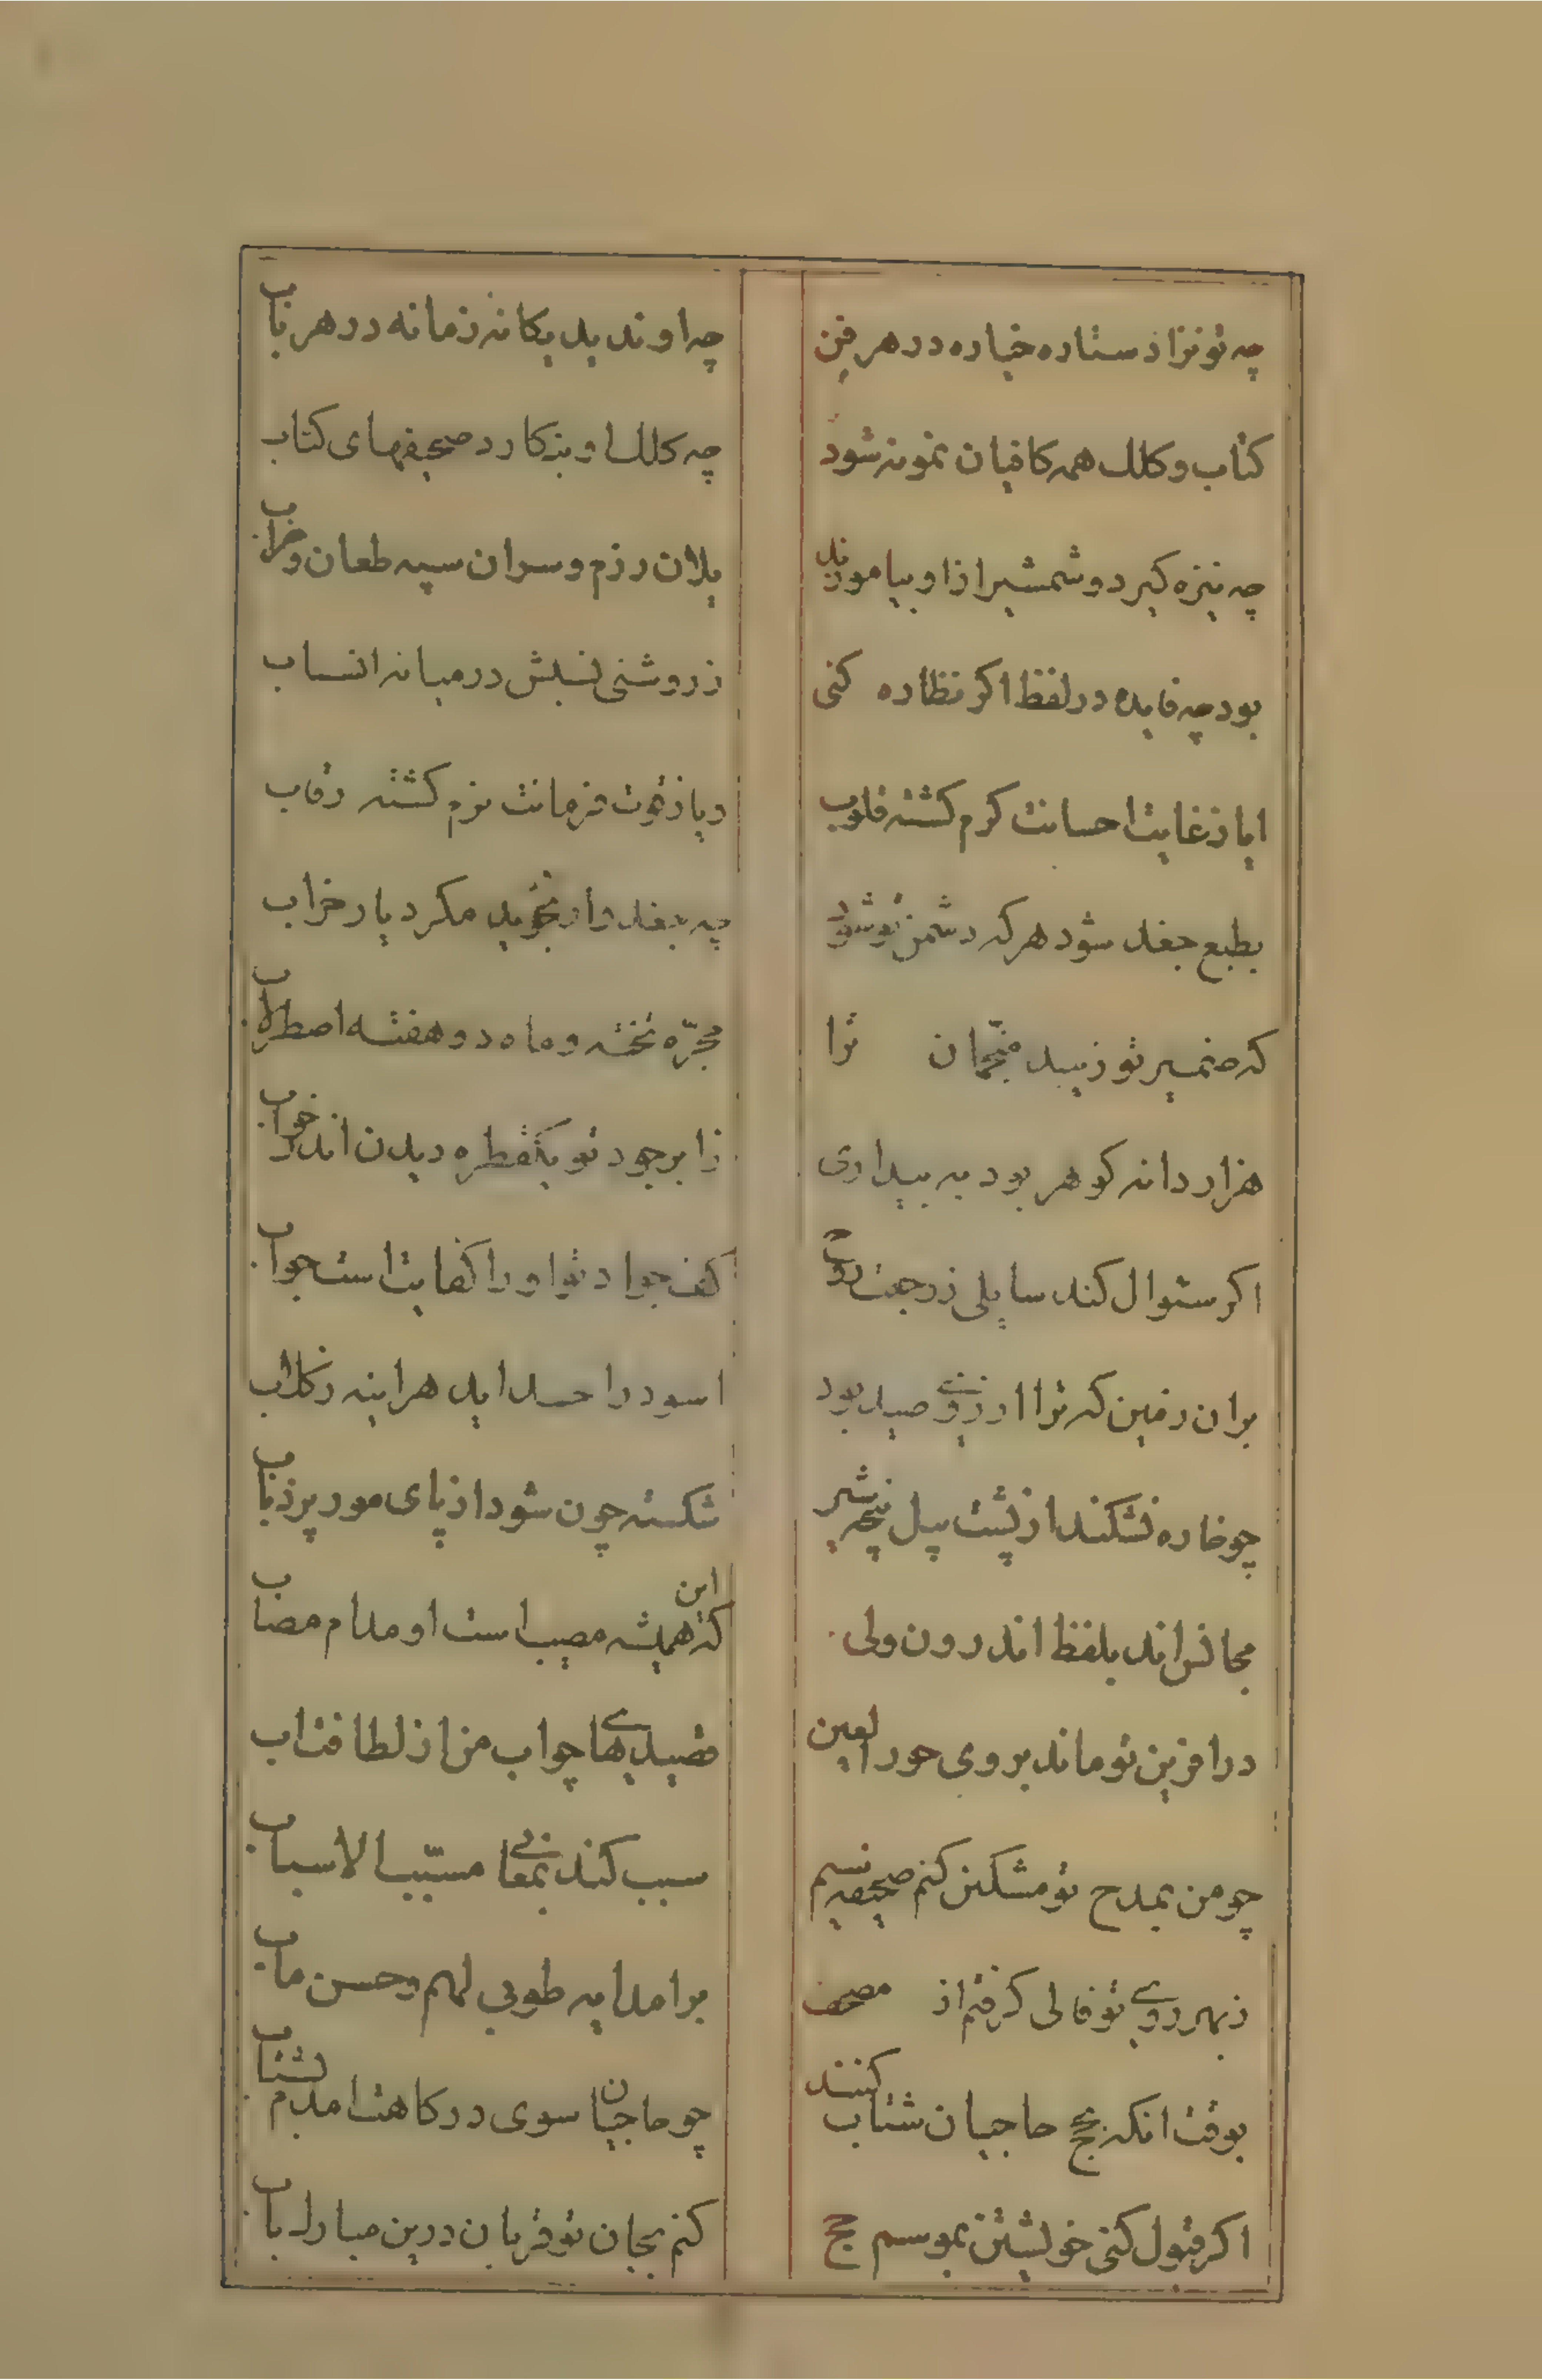 چه تو نزاد ستاره خیاره در هر فن
چه او ندید یکانه زمانه در هر باب
کتاب و کلک همه کافیان نمونه شود
چه کلک او بنکارد صحیفهای کتاب
چه نیزه کیرد و شمشیر ازاو بیاموزند
یلان رزم و سران سپه طعان و ضراب
بود چه فایده در لفظ اکر نظاره کنی
ز روشنی نسبش در میانه انساب
ایا ز غایت احسانت کرم کشته قلوب
و یا ز قوت فرمانت نرم کشته رقاب
بطبع جغد شود هر که دشمن تو شود
چه جغد را نجوید مکر دیار خراب
که ضمیر تو زیبد منجّمان ترا
مجرّه تخته و ماه دو هفته اصطرلاب
هزار دانه کوهر بود به بیداری
ز ابر جود تو یکقطره دیدن اندر خواب
اکر سئوال کند سایلی ز رجعت
کف جواد تو او را کفایت است جواب
بران زمین که ترا ارزوی صید بود
اسود را حسد اید هراینه ز کلاب
چو خاره نشکند از پشت پیل پنجه شیر
شکسته چون شود از پای مور پر ذباب
مجانس اند بلفظ اندرون ولی
که این همیشه مصیب است او مدام مصاب
در افرین تو ماند بروی حور العین
قصیدیهای چو اب من از لطافت اب
چو من بمدح تو مشکین کنم صحیفه نسیم
سبب کند بمعانی مسبّب الاسباب
ز بهر روی تو فالی کرفتم از مصحف
برامد ایه طوبی لهم و حسن ماب
بوقت انکه بحج حاجیان شتاب کنند
چو حاجیان سوی درکاهت امدم بشتاب
اکر قبول کنی خویشتن بموسم حج
کنم بجان تو قربان درین مبارک باب